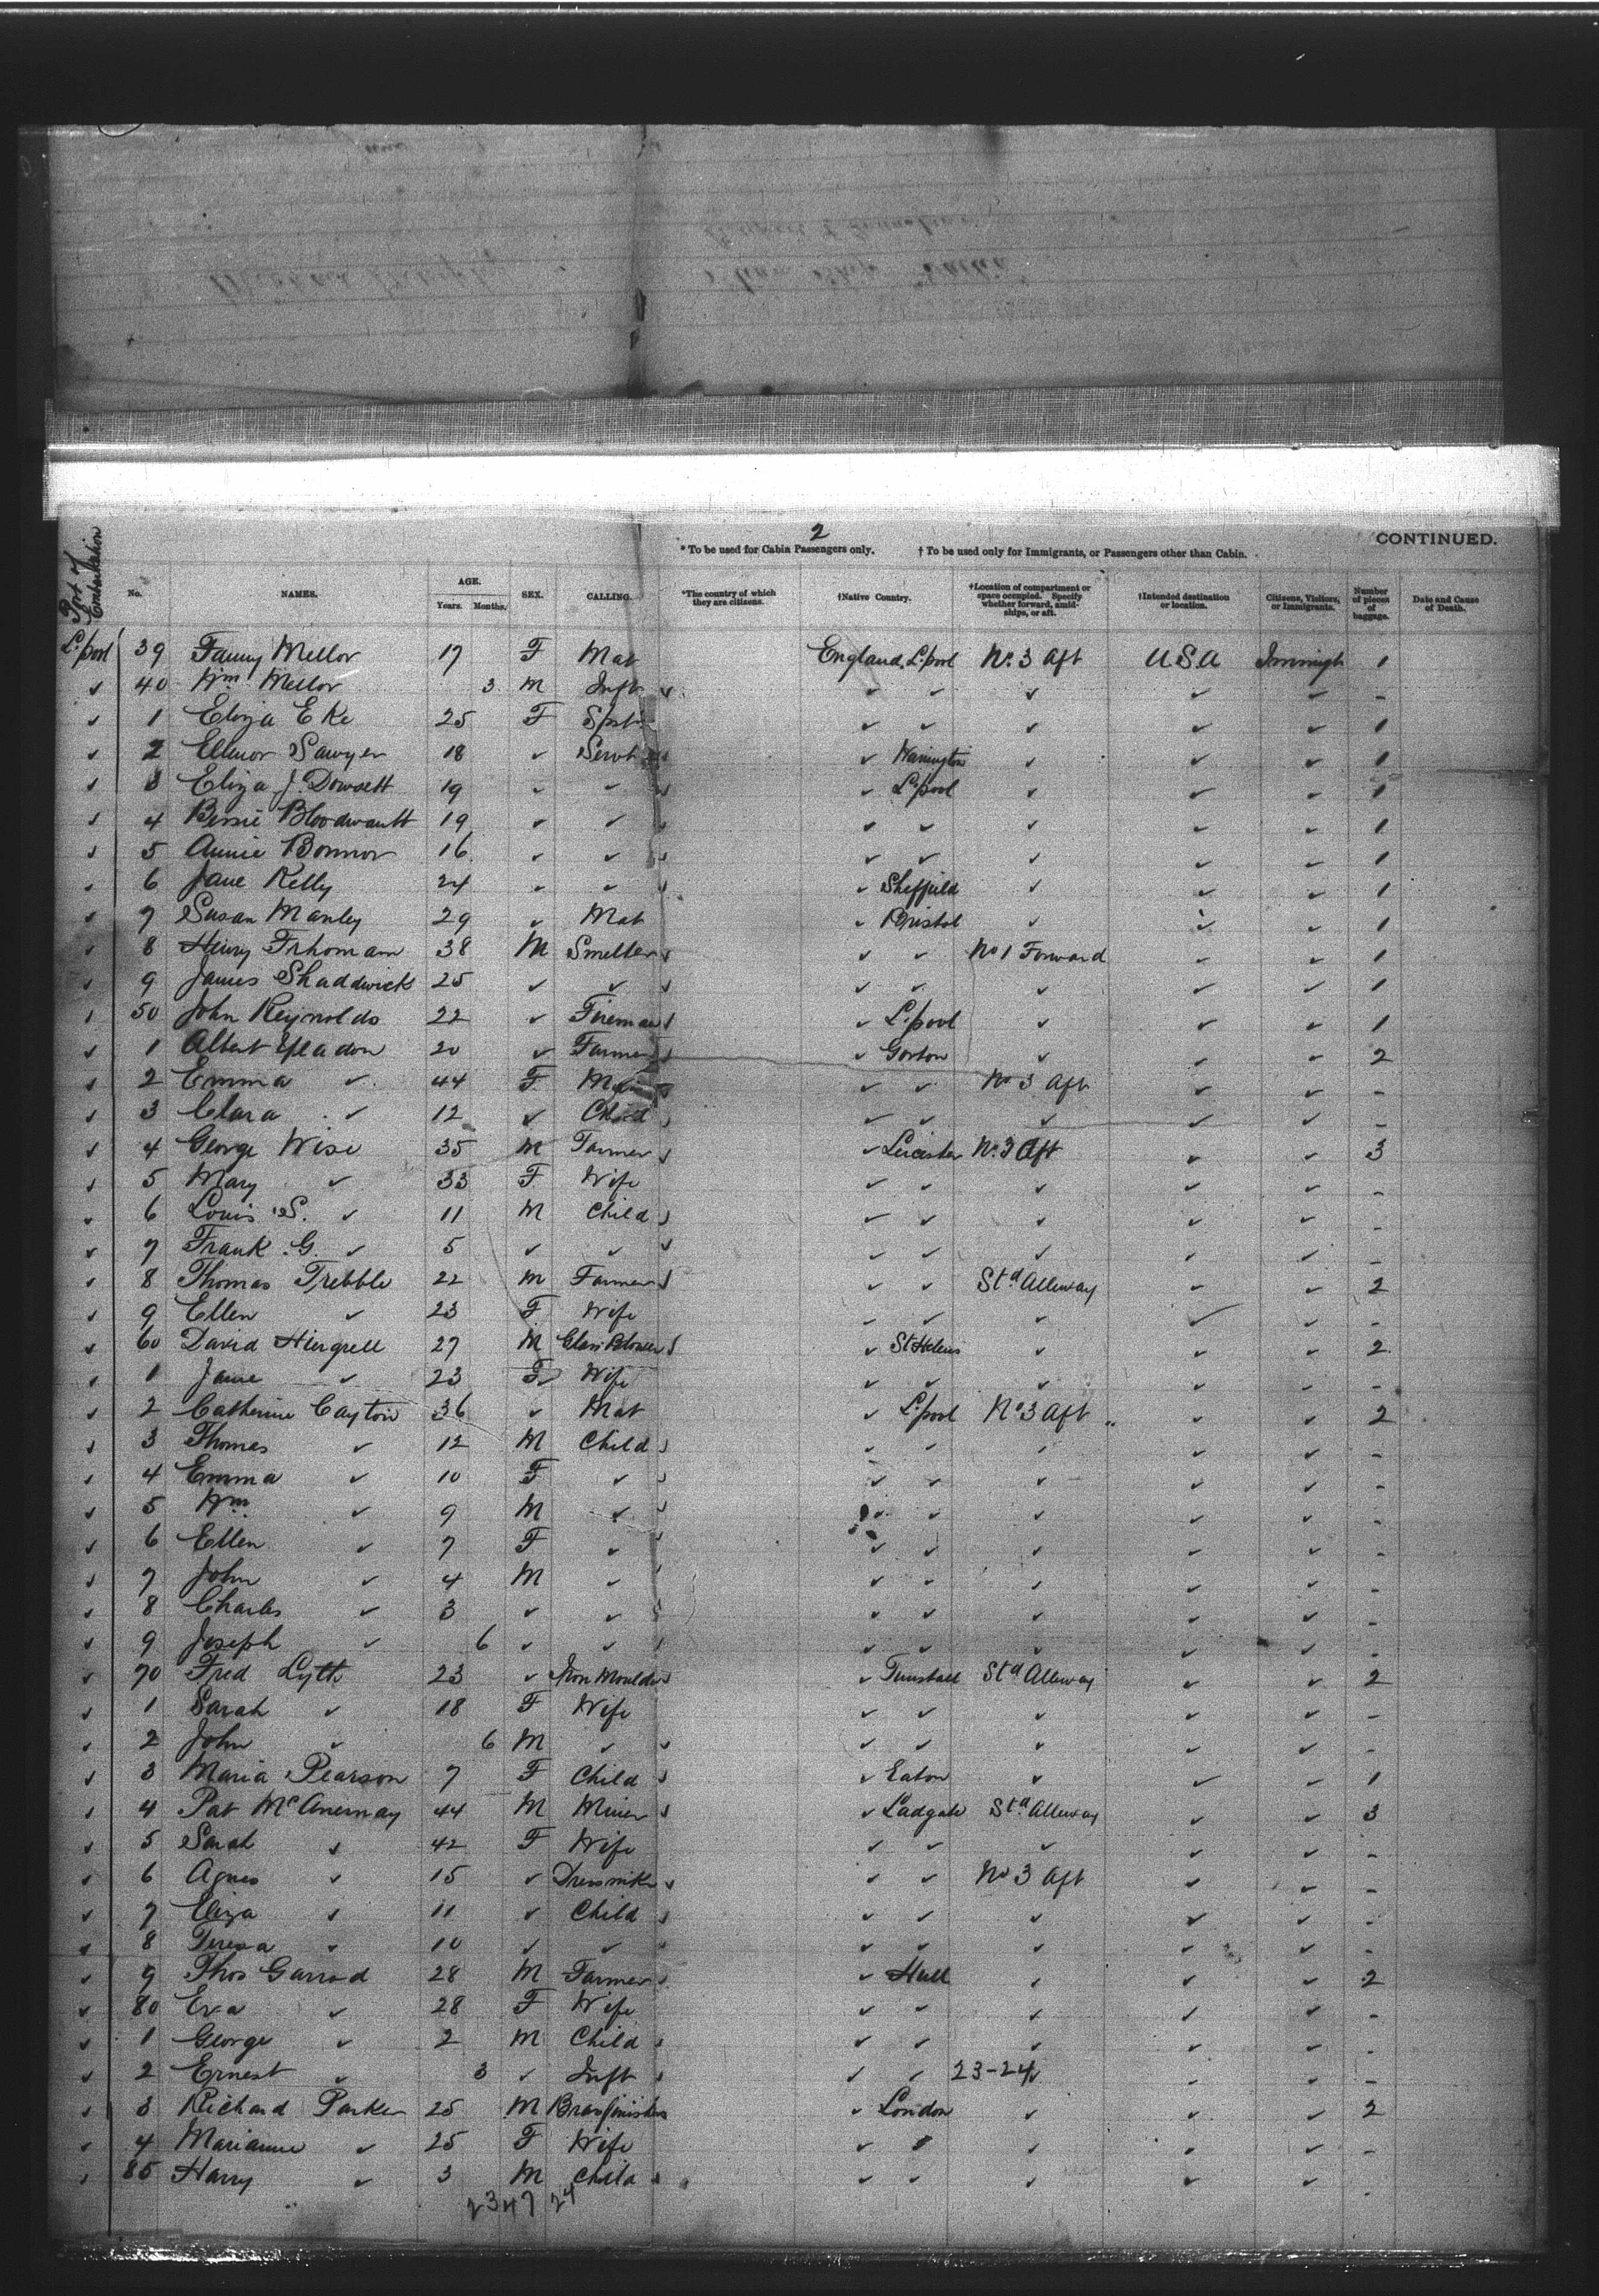 2
CONTINUED.
* To be used for Cabin Passengers only. † To be used only for Immigrants, or Passengers other than Cabin.
Port of Embarkation No. NAMES. AGE. Years. Months. SEX. CALLING. *The country of which they are citizens. †Native Country. †Location of compartment or space occupied. Specify whether forward, amid-ships, or aft. †Intended destination or location. Citizens, Visitors, or Immigrants. Number of pieces of baggage. Date and Cause of Death.
L.pool 39 Fanny Mellor 17 F Mat England L.pool No. 3 Aft U.S.A 1
✓ 40 Wm Mellor 3 M Inft ✓ ✓ ✓ ✓ ✓ ✓ -
✓ 1 Eliza Eke 25 F ✓ ✓ ✓ ✓ ✓ 1
✓ 2 Ellenor Sawyer 18 ✓ Servt ✓ Warrington ✓ ✓ ✓ 1
✓ 3 Eliza J. Dowsett 19 ✓ ✓ ✓ ✓ L.pool ✓ ✓ ✓ 1
✓ 4 Bessie 19 ✓ ✓ ✓ ✓ ✓ ✓ ✓ ✓ 1
✓ 5 Annie Bonnor 16 ✓ ✓ ✓ ✓ ✓ ✓ ✓ ✓ 1
✓ 6 Jane Kelly 24 ✓ ✓ ✓ ✓ Sheffield ✓ ✓ ✓ 1
✓ 7 Susan Manley 29 ✓ Mat ✓ Bristol ✓ ✓ ✓ 1
✓ 8 Henry 38 M Smelter ✓ ✓ ✓ No 1 Forward ✓ ✓ 1
✓ 9 James Shaddwick 25 ✓ ✓ ✓ ✓ ✓ ✓ ✓ ✓ 1
✓ 50 John Reynolds 22 ✓ Fireman ✓ ✓ L.pool ✓ ✓ ✓ 1
✓ 1 Albert 20 ✓ Farmer ✓ ✓ Gorton ✓ ✓ ✓ 2
✓ 2 Emma ✓ 44 F ✓ ✓ No 3 Aft ✓ ✓ -
✓ 3 Clara ✓ 12 ✓ Child ✓ ✓ ✓ ✓ ✓ ✓ -
✓ 4 George Wise 35 M Farmer ✓ ✓ Leicester No. 3 Aft ✓ ✓ 3
✓ 5 Mary ✓ 33 F Wife ✓ ✓ ✓ ✓ ✓ -
✓ 6 Louis S. ✓ 11 M Child ✓ ✓ ✓ ✓ ✓ ✓ -
✓ 7 Frank G. ✓ 5 ✓ ✓ ✓ ✓ ✓ ✓ ✓ ✓ -
✓ 8 Thomas Trebble 22 M Farmer ✓ ✓ ✓ Std Alleway ✓ ✓ 2
✓ 9 Ellen ✓ 23 F Wife ✓ ✓ ✓ ✓ ✓ -
✓ 60 David 27 M Glass Blower ✓ ✓ St Helens ✓ ✓ ✓ 2
✓ 1 Jane ✓ 23 F Wife ✓ ✓ ✓ ✓ ✓ -
✓ 2 Catherine Cayton 36 ✓ Mat ✓ L.pool No 3 Aft ✓ ✓ 2
✓ 3 Thomas ✓ 12 M Child ✓ ✓ ✓ ✓ ✓ ✓ -
✓ 4 Emma ✓ 10 F ✓ ✓ ✓ ✓ ✓ ✓ ✓ -
✓ 5 Wm ✓ 9 M ✓ ✓ ✓ ✓ ✓ ✓ ✓ -
✓ 6 Ellen ✓ 7 F ✓ ✓ ✓ ✓ ✓ ✓ ✓ -
✓ 7 John ✓ 4 M ✓ ✓ ✓ ✓ ✓ ✓ -
✓ 8 Charles ✓ 3 ✓ ✓ ✓ ✓ ✓ ✓ ✓ ✓ -
✓ 9 Joseph ✓ 6 ✓ ✓ ✓ ✓ ✓ ✓ ✓ ✓ -
✓ 70 Fred Lyth 23 ✓ Iron Moulder ✓ Tunstall Std Alleway ✓ ✓ 2
✓ 1 Sarah ✓ 18 F Wife ✓ ✓ ✓ ✓ ✓ -
✓ 2 John ✓ 6 M ✓ ✓ ✓ ✓ ✓ ✓ ✓ -
✓ 3 Maria Pearson 7 F Child ✓ ✓ Eaton ✓ ✓ ✓ 1
✓ 4 Pat McAnernay 44 M Miner ✓ ✓ Ladgate Std Alleway ✓ ✓ 3
✓ 5 Sarah ✓ 42 F Wife ✓ ✓ ✓ ✓ ✓ -
✓ 6 Agnes ✓ 15 ✓ Dressmkr ✓ ✓ ✓ No 3 Aft ✓ ✓ -
✓ 7 Eliza ✓ 11 ✓ Child ✓ ✓ ✓ ✓ ✓ ✓ -
✓ 8 Teresa ✓ 10 ✓ ✓ ✓ ✓ ✓ ✓ ✓ -
✓ 9 Thos Garrod 28 M Farmer ✓ ✓ Hull ✓ ✓ ✓ 2
✓ 80 Eva ✓ 28 F Wife ✓ ✓ ✓ ✓ ✓ -
✓ 1 George ✓ 2 M Child ✓ ✓ ✓ ✓ ✓ ✓ -
✓ 2 Ernest ✓ 3 ✓ Inft ✓ ✓ ✓ 23-24 ✓ ✓ -
✓ 3 Richard Parker 25 M Brassfinisher ✓ London ✓ ✓ ✓ 2
✓ 4 Marianne ✓ 25 F Wife ✓ ✓ ✓ ✓ -
✓ 85 Harry ✓ 3 M Child ✓ ✓ ✓ ✓ ✓ ✓ -
2347 24